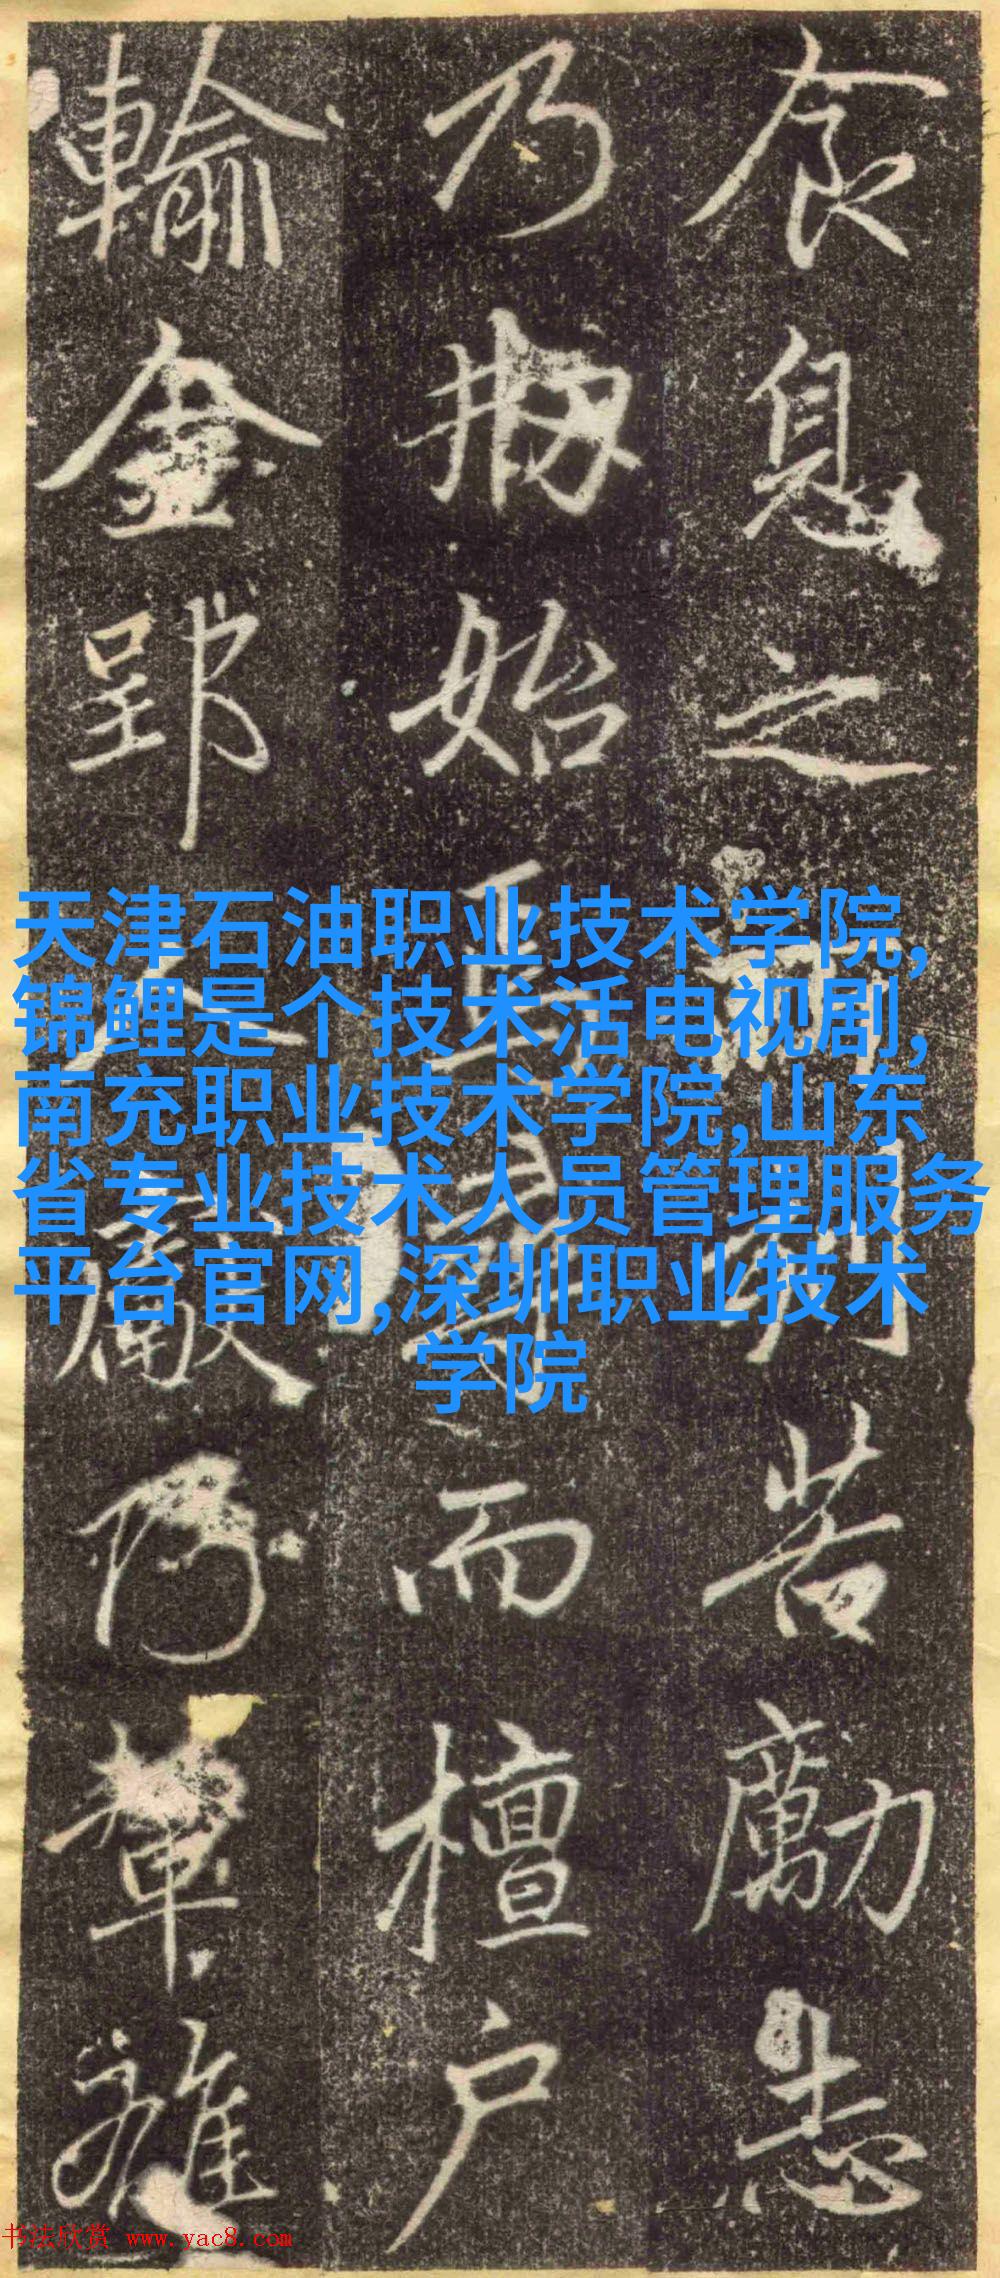 食息之刻苦勵志
乃始而檀户
輸金郢人
天津石油职业技术学院,
锦鲤是个技术活电视剧,
南充职业技术学院,山东
省专业技术人员管理服务
平台官网,深圳职业技术
学院
书法欣赏 www.yac8.com